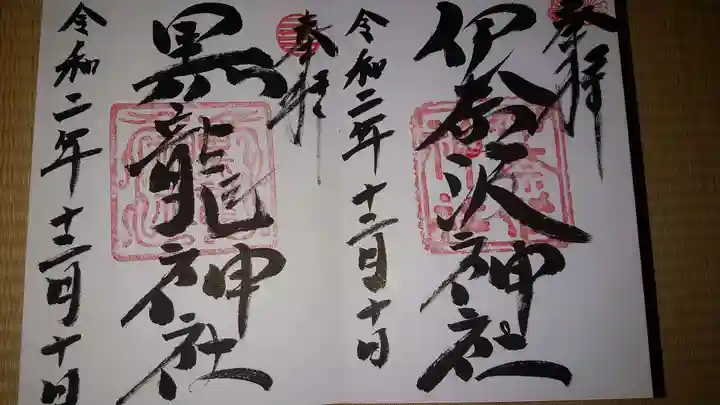 奉拝
伊奈沢神社
令和二年十二月十日
奉拝
黒龍神社
令和二年十二月十日